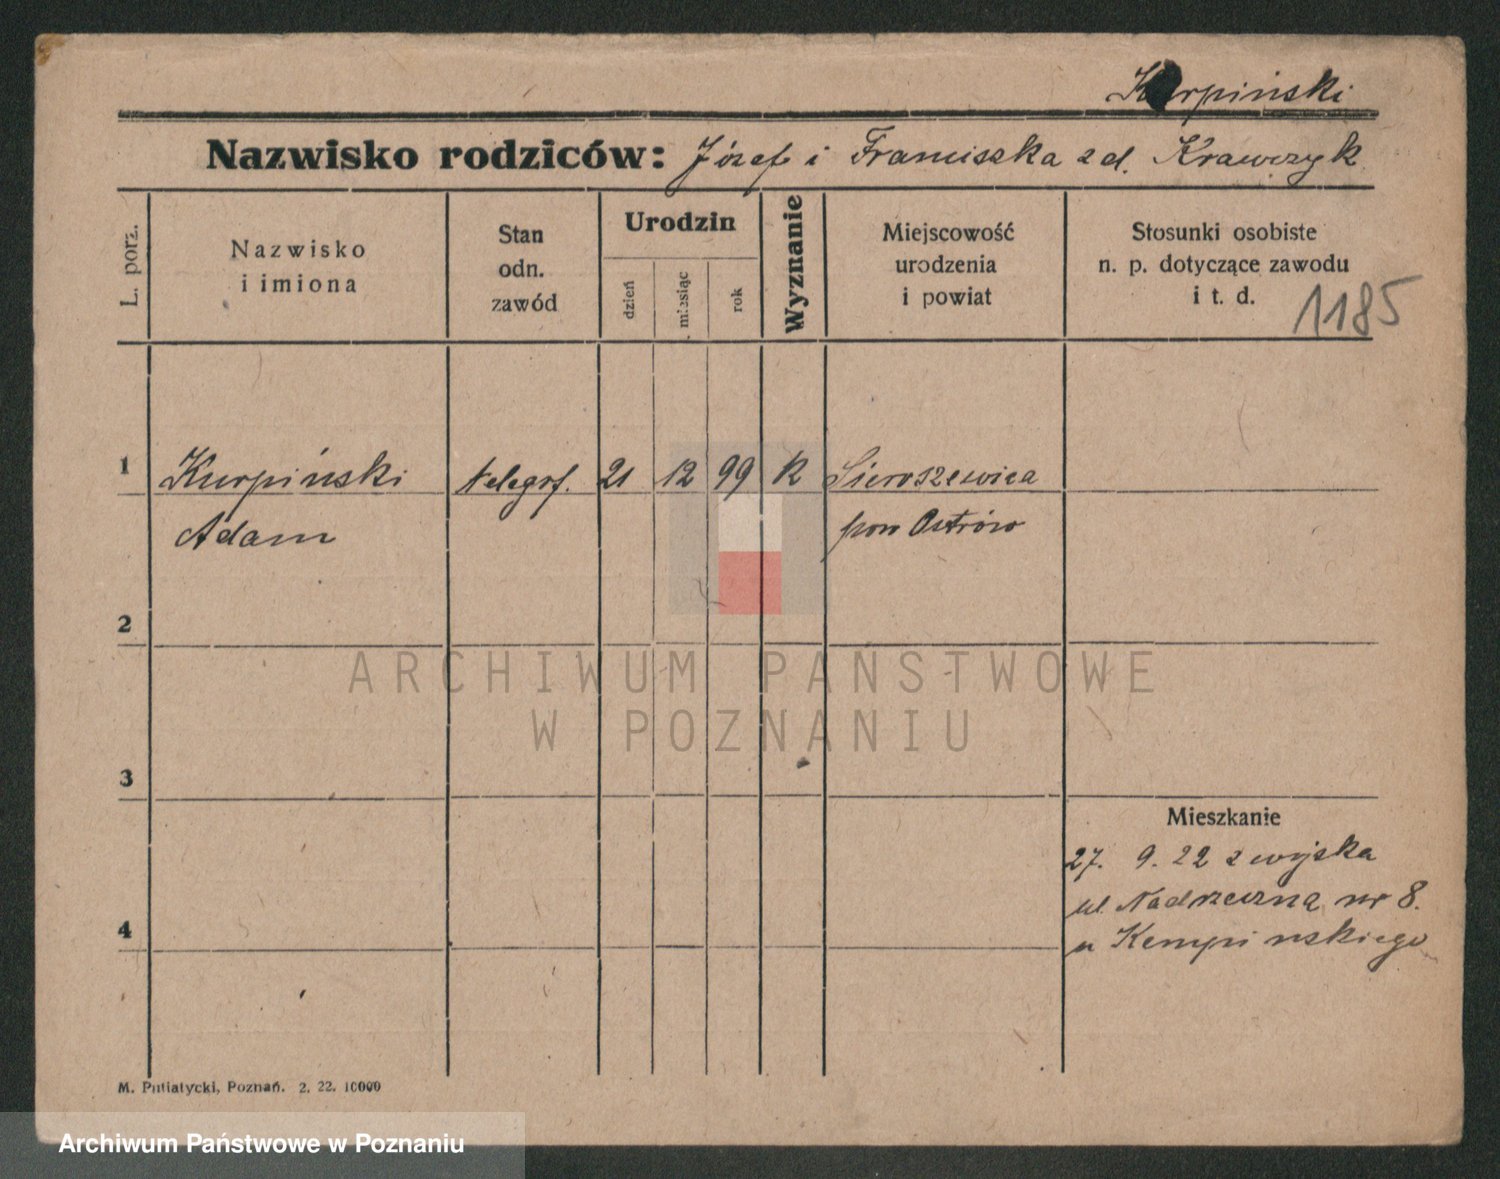 Kurpiński
Nazwisko rodziców: Józef i Franciszka zd. Krawczyk
L. porz.
Nazwisko
i imiona
Stan
odn.
zawód
Urodzin
dzień
miesiąc
rok
Wyznanie
Miejscowość
urodzenia
i powiat
Stosunki osobiste
n. p. dotyczące zawodu
i t. d.
1185
1 Kurpiński telegrf. 21 12 99 k Sieroszewica
Adam pow Ostrów
2
ARCHIWUM PAŃSTWOWE
W POZNANIU
3
Mieszkanie
27. 9. 22 z wojska
ul. Nadrzeczną nr 8.
4
u Kempińskiego
M. Putiatycki, Poznań. 2. 22. 10000
Archiwum Państwowe w Poznaniu